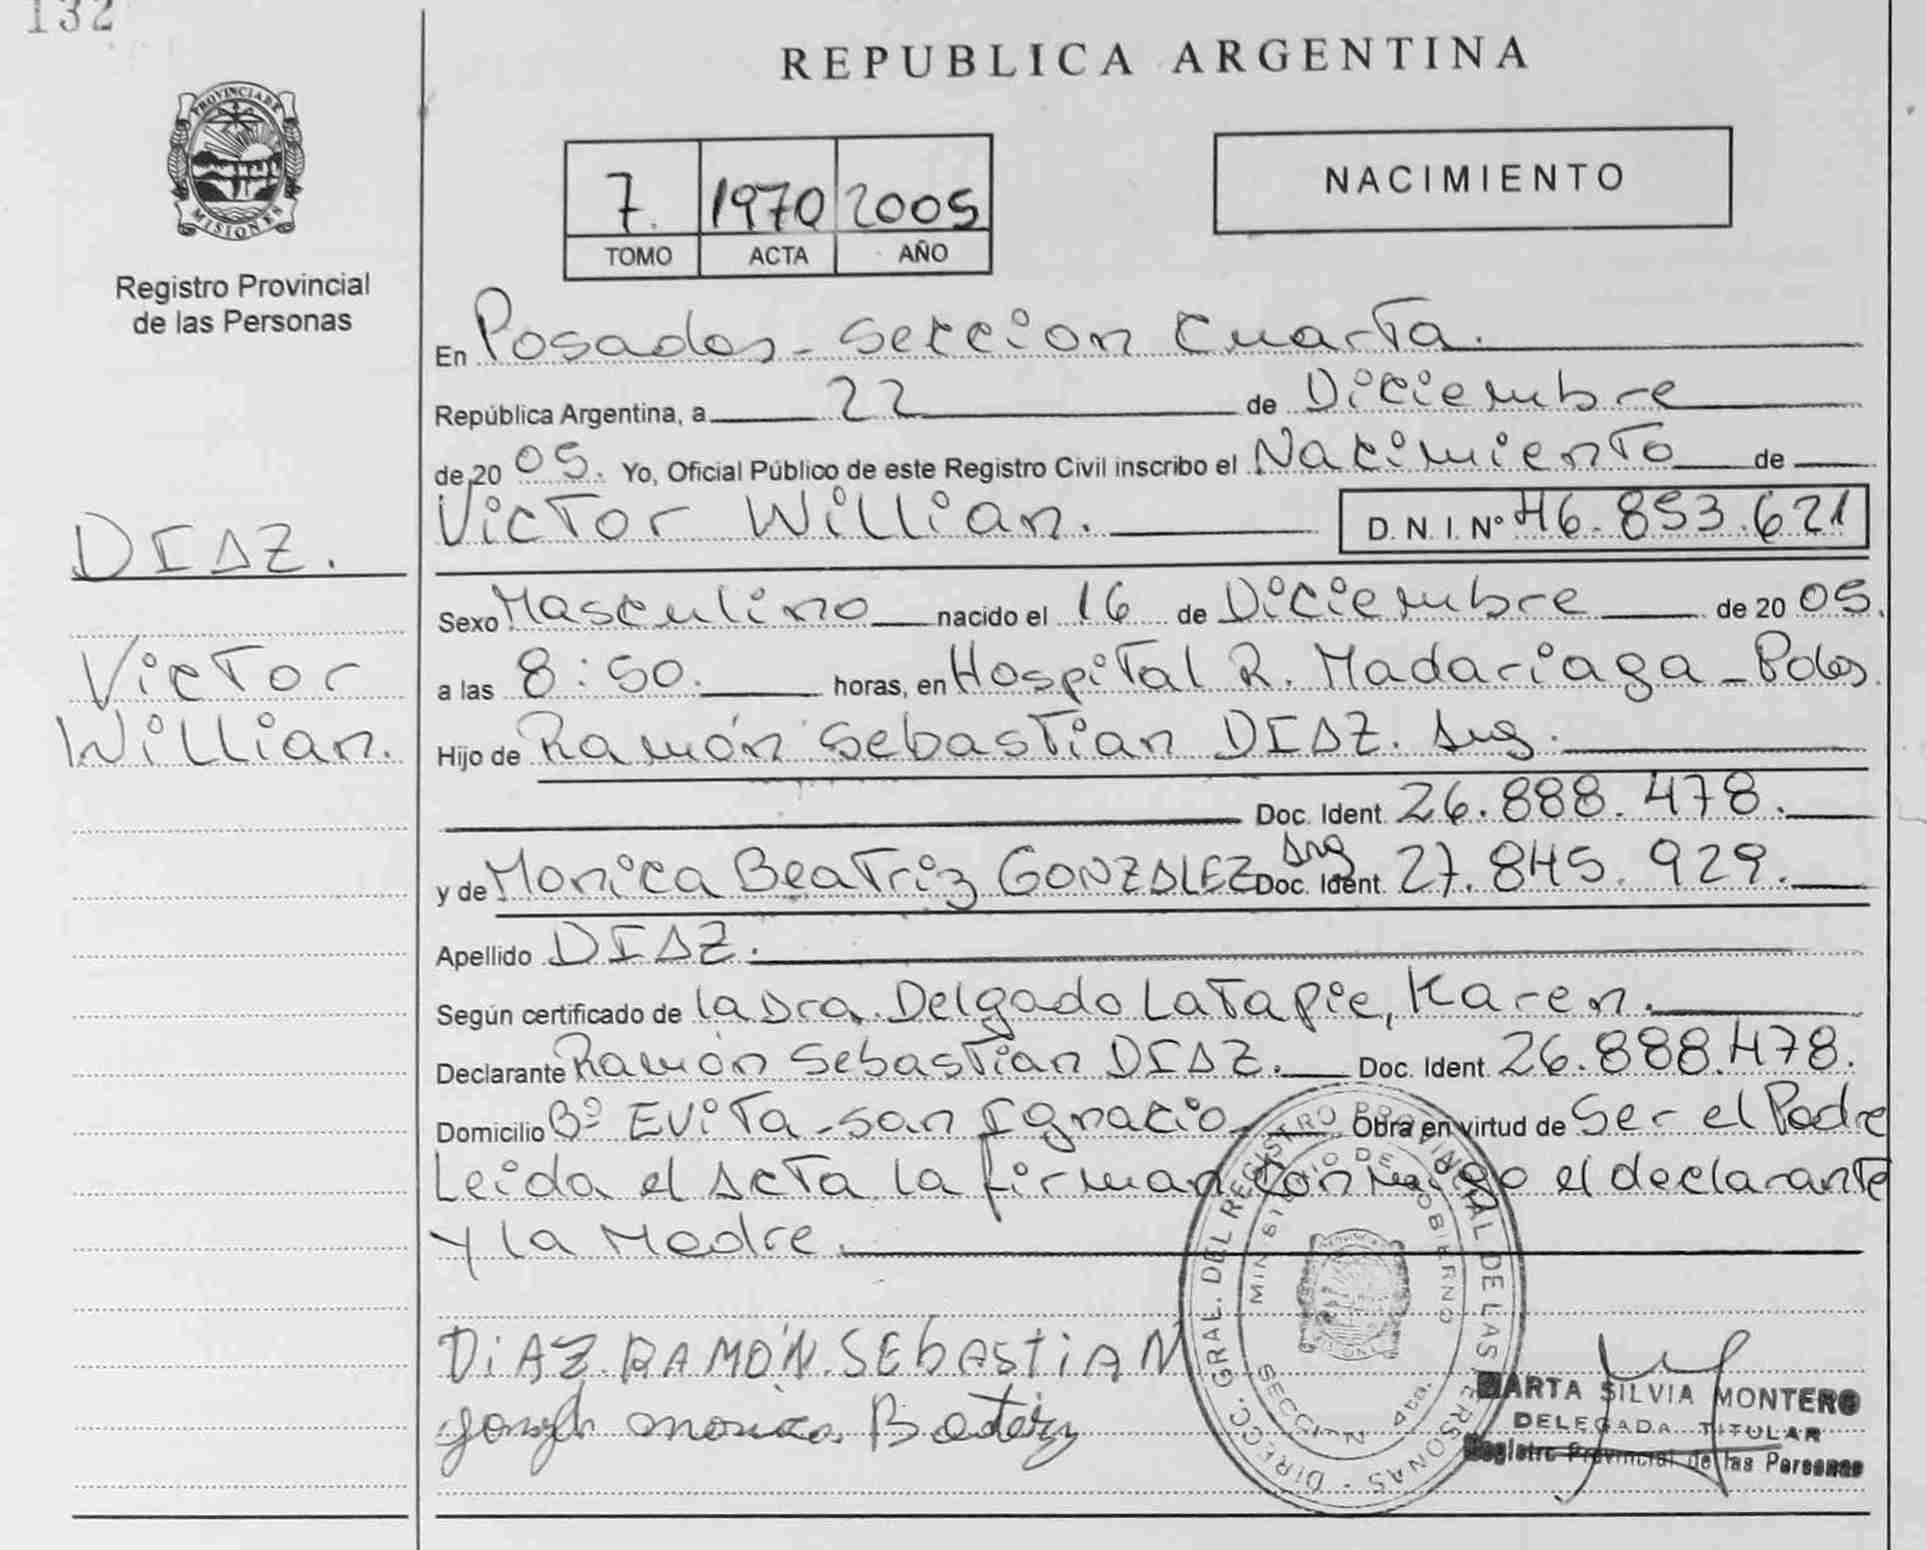 132
PROVINCIA DE
MISIONES
Registro Provincial
de las Personas
DIAZ.
Victor
Willian.
REPUBLICA ARGENTINA
7. 1970 2005
TOMO ACTA AÑO
NACIMIENTO
En Posadas - Seccion Cuarta.
República Argentina, a 22 de Diciembre
de 20 05. Yo, Oficial Público de este Registro Civil inscribo el Nacimiento de
Victor Willian. D.N.I. Nº 46.853.621
Sexo Masculino nacido el 16 de Diciembre de 20 05.
a las 8:50. horas, en Hospital R. Madariaga - Pdas.
Hijo de Ramón Sebastian DIAZ. Arg.
Doc. Ident. 26.888.478.
y de Monica Beatriz GONZALEZ Arg Doc. Ident. 27.845.929.
Apellido DIAZ.
Según certificado de la Dra. Delgado Latapie, Karen.
Declarante Ramón Sebastian DIAZ. Doc. Ident. 26.888.478.
Domicilio Bº Evita - San Ignacio Obra en virtud de Ser el Padre
Leida el Acta la firman conmigo el declarante
y la Madre.
DIRECC. GRAL. DEL REGISTRO PROVINCIAL DE LAS PERSONAS
MINISTERIO DE GOBIERNO
SECCION 4ta.
DiAZ.RAMÓN.SEbAStiAN
monica
MARTA SILVIA MONTERO
DELEGADA TITULAR
Registro Provincial de las Personas